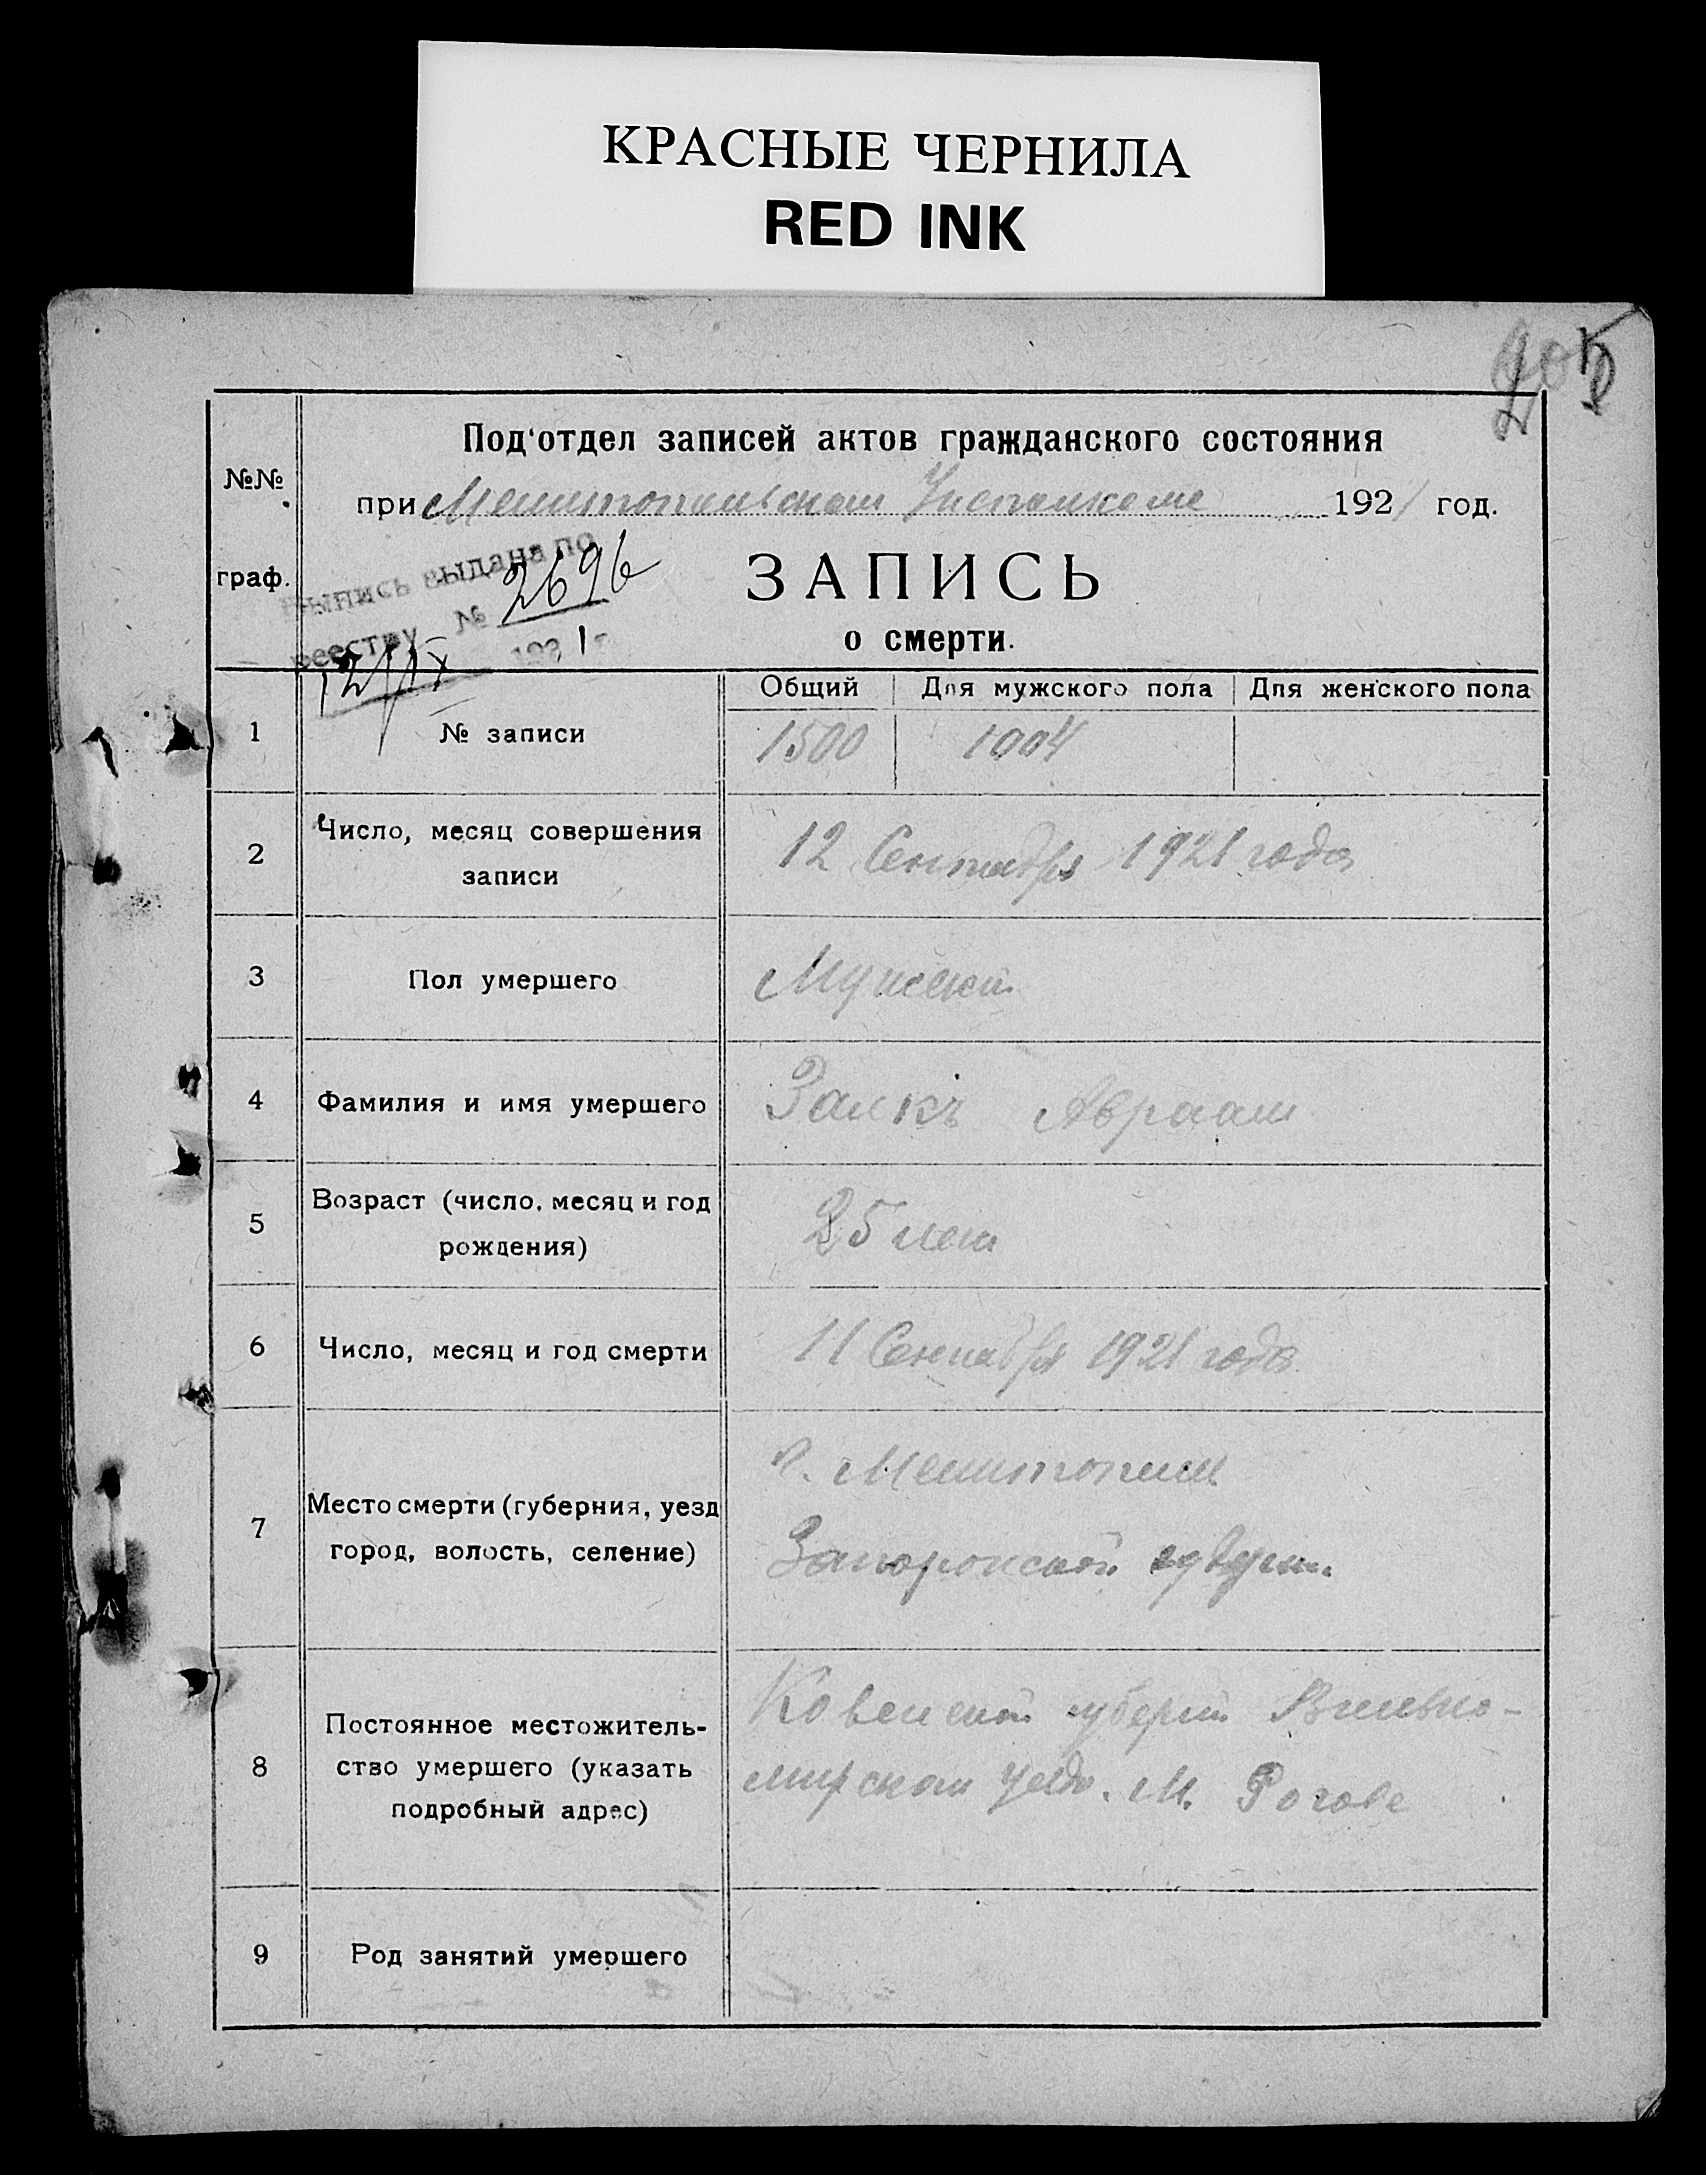 КРАСНЫЕ ЧЕРНИЛА
RED INK
Под'отдел записей актов гражданского состояния
№№
при Мелитопольском Исполкоме 1921 год.
граф.
Выпись выдана по
реестру № 2696
1921
ЗАПИСЬ
о смерти.
Общий Для мужского пола Для женского пола
1 № записи 1500 1004
2 Число, месяц совершения
записи
12 Сентября 1921 года
3 Пол умершего Мужской
4 Фамилия и имя умершего Залкъ Авраам
5 Возраст (число, месяц и год
рождения)
25 лет
6 Число, месяц и год смерти 11 Сентября 1921 года
7 Место смерти (губерния, уезд
город, волость, селение)
г. Мелитополь
Запорожской губерн.
8 Постоянное местожитель-
ство умершего (указать
подробный адрес)
Ковенской губерни Вилько-
мирском уезда. М. Рогове
9 Род занятий умершего